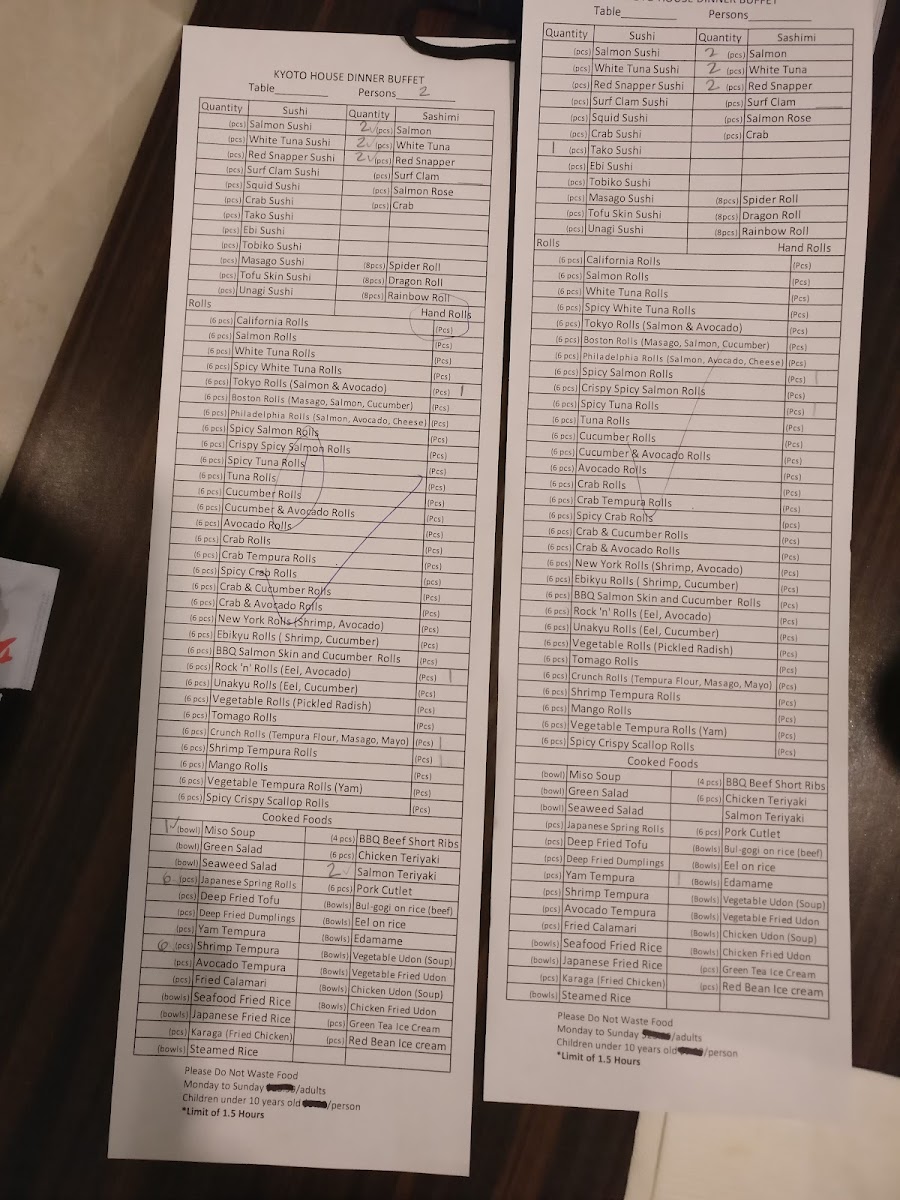 KYOTO HOUSE DINNER BUFFET
Table________ Persons__2__
Quantity Sushi Quantity Sashimi
(pcs) Salmon Sushi 2✓(pcs) Salmon
(pcs) White Tuna Sushi 2✓(pcs) White Tuna
(pcs) Red Snapper Sushi 2✓(pcs) Red Snapper
(pcs) Surf Clam Sushi (pcs) Surf Clam
(pcs) Squid Sushi (pcs) Salmon Rose
(pcs) Crab Sushi (pcs) Crab
(pcs) Tako Sushi
(pcs) Ebi Sushi
(pcs) Tobiko Sushi
(pcs) Masago Sushi (8pcs) Spider Roll
(pcs) Tofu Skin Sushi (8pcs) Dragon Roll
(pcs) Unagi Sushi (8pcs) Rainbow Roll
Rolls Hand Rolls
(6 pcs) California Rolls (Pcs)
(6 pcs) Salmon Rolls (Pcs)
(6 pcs) White Tuna Rolls (Pcs)
(6 pcs) Spicy White Tuna Rolls (Pcs)
(6 pcs) Tokyo Rolls (Salmon & Avocado) (Pcs) 1
(6 pcs) Boston Rolls (Masago, Salmon, Cucumber) (Pcs)
(6 pcs) Philadelphia Rolls (Salmon, Avocado, Cheese) (Pcs)
(6 pcs) Spicy Salmon Rolls (Pcs)
(6 pcs) Crispy Spicy Salmon Rolls (Pcs)
(6 pcs) Spicy Tuna Rolls (Pcs)
(6 pcs) Tuna Rolls (Pcs)
(6 pcs) Cucumber Rolls (Pcs)
(6 pcs) Cucumber & Avocado Rolls (Pcs)
(6 pcs) Avocado Rolls (Pcs)
(6 pcs) Crab Rolls (Pcs)
(6 pcs) Crab Tempura Rolls (Pcs)
(6 pcs) Spicy Crab Rolls (pcs)
(6 pcs) Crab & Cucumber Rolls (Pcs)
(6 pcs) Crab & Avocado Rolls (Pcs)
(6 pcs) New York Rolls (Shrimp, Avocado) (Pcs)
(6 pcs) Ebikyu Rolls ( Shrimp, Cucumber) (Pcs)
(6 pcs) BBQ Salmon Skin and Cucumber Rolls (Pcs)
(6 pcs) Rock 'n' Rolls (Eel, Avocado) (Pcs) 1
(6 pcs) Unakyu Rolls (Eel, Cucumber) (Pcs)
(6 pcs) Vegetable Rolls (Pickled Radish) (Pcs)
(6 pcs) Tomago Rolls (Pcs)
(6 pcs) Crunch Rolls (Tempura Flour, Masago, Mayo) (Pcs) 1
(6 pcs) Shrimp Tempura Rolls (Pcs) 1
(6 pcs) Mango Rolls (Pcs)
(6 pcs) Vegetable Tempura Rolls (Yam) (Pcs)
(6 pcs) Spicy Crispy Scallop Rolls (Pcs)
Cooked Foods
1✓(bowl) Miso Soup (4 pcs) BBQ Beef Short Ribs
(bowl) Green Salad (6 pcs) Chicken Teriyaki
(bowl) Seaweed Salad 2✓ Salmon Teriyaki
6 (pcs) Japanese Spring Rolls (6 pcs) Pork Cutlet
(pcs) Deep Fried Tofu (Bowls) Bul-gogi on rice (beef)
(pcs) Deep Fried Dumplings (Bowls) Eel on rice
(pcs) Yam Tempura (Bowls) Edamame
6 (pcs) Shrimp Tempura (Bowls) Vegetable Udon (Soup)
(pcs) Avocado Tempura (Bowls) Vegetable Fried Udon
(pcs) Fried Calamari (Bowls) Chicken Udon (Soup)
(bowls) Seafood Fried Rice (Bowls) Chicken Fried Udon
(bowls) Japanese Fried Rice (pcs) Green Tea Ice Cream
(pcs) Karaga (Fried Chicken) (pcs) Red Bean Ice cream
(bowls) Steamed Rice
Please Do Not Waste Food
Monday to Sunday /adults
Children under 10 years old /person
*Limit of 1.5 Hours
KYOTO HOUSE DINNER BUFFET
Table________ Persons________
Quantity Sushi Quantity Sashimi
(pcs) Salmon Sushi 2 (pcs) Salmon
(pcs) White Tuna Sushi 2 (pcs) White Tuna
(pcs) Red Snapper Sushi 2 (pcs) Red Snapper
(pcs) Surf Clam Sushi (pcs) Surf Clam
(pcs) Squid Sushi (pcs) Salmon Rose
(pcs) Crab Sushi (pcs) Crab
1 (pcs) Tako Sushi
(pcs) Ebi Sushi
(pcs) Tobiko Sushi
(pcs) Masago Sushi (8pcs) Spider Roll
(pcs) Tofu Skin Sushi (8pcs) Dragon Roll
(pcs) Unagi Sushi (8pcs) Rainbow Roll
Rolls Hand Rolls
(6 pcs) California Rolls (Pcs)
(6 pcs) Salmon Rolls (Pcs)
(6 pcs) White Tuna Rolls (Pcs)
(6 pcs) Spicy White Tuna Rolls (Pcs)
(6 pcs) Tokyo Rolls (Salmon & Avocado) (Pcs)
(6 pcs) Boston Rolls (Masago, Salmon, Cucumber) (Pcs)
(6 pcs) Philadelphia Rolls (Salmon, Avocado, Cheese) (Pcs)
(6 pcs) Spicy Salmon Rolls (Pcs) 1
(6 pcs) Crispy Spicy Salmon Rolls (Pcs)
(6 pcs) Spicy Tuna Rolls (Pcs) 1
(6 pcs) Tuna Rolls (Pcs)
(6 pcs) Cucumber Rolls (Pcs)
(6 pcs) Cucumber & Avocado Rolls (Pcs)
(6 pcs) Avocado Rolls (Pcs)
(6 pcs) Crab Rolls (Pcs)
(6 pcs) Crab Tempura Rolls (Pcs)
(6 pcs) Spicy Crab Rolls (Pcs)
(6 pcs) Crab & Cucumber Rolls (Pcs)
(6 pcs) Crab & Avocado Rolls (Pcs)
(6 pcs) New York Rolls (Shrimp, Avocado) (Pcs)
(6 pcs) Ebikyu Rolls ( Shrimp, Cucumber) (Pcs)
(6 pcs) BBQ Salmon Skin and Cucumber Rolls (Pcs)
(6 pcs) Rock 'n' Rolls (Eel, Avocado) (Pcs)
(6 pcs) Unakyu Rolls (Eel, Cucumber) (Pcs)
(6 pcs) Vegetable Rolls (Pickled Radish) (Pcs)
(6 pcs) Tomago Rolls (Pcs)
(6 pcs) Crunch Rolls (Tempura Flour, Masago, Mayo) (Pcs)
(6 pcs) Shrimp Tempura Rolls (Pcs)
(6 pcs) Mango Rolls (Pcs)
(6 pcs) Vegetable Tempura Rolls (Yam) (Pcs)
(6 pcs) Spicy Crispy Scallop Rolls (Pcs)
Cooked Foods
(bowl) Miso Soup (4 pcs) BBQ Beef Short Ribs
(bowl) Green Salad (6 pcs) Chicken Teriyaki
(bowl) Seaweed Salad Salmon Teriyaki
(pcs) Japanese Spring Rolls (6 pcs) Pork Cutlet
(pcs) Deep Fried Tofu (Bowls) Bul-gogi on rice (beef)
(pcs) Deep Fried Dumplings (Bowls) Eel on rice
(pcs) Yam Tempura 1 (Bowls) Edamame
(pcs) Shrimp Tempura (Bowls) Vegetable Udon (Soup)
(pcs) Avocado Tempura (Bowls) Vegetable Fried Udon
(pcs) Fried Calamari (Bowls) Chicken Udon (Soup)
(bowls) Seafood Fried Rice (Bowls) Chicken Fried Udon
(bowls) Japanese Fried Rice (pcs) Green Tea Ice Cream
(pcs) Karaga (Fried Chicken) (pcs) Red Bean Ice cream
(bowls) Steamed Rice
Please Do Not Waste Food
Monday to Sunday /adults
Children under 10 years old /person
*Limit of 1.5 Hours